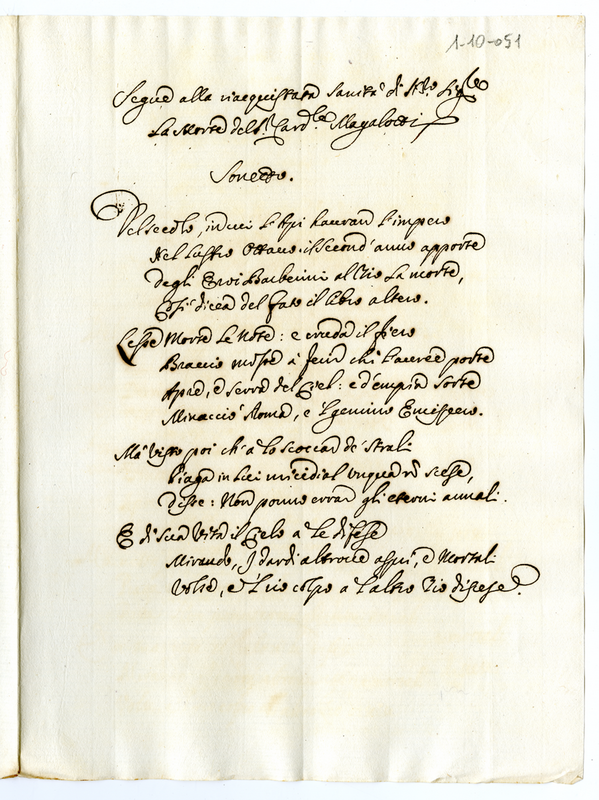 1-10-051
Segue alla riacquistata Sanità di N.ro Sig.re
La Morte del S.r Card.le Magalotti
Sonetto.
Nel secolo, in cui l'Api havran l'impero
Nel lustro Ottavo il second'anno apporte
degli Eroi Barberini al Zio la morte,
Così dicea del fato il libro altero.
Lesse Morte le Note: e cruda il fiero
Braccio mosse a ferir chi l'auree porte
Apre, e serra del Ciel: e d'empia sorte
Minacciò Roma, e l gemino Emispero.
Mà visto poi ch'a lo scoccar de' strali
Piaga in lui micidial unqua nõ scese,
disse: Non ponno errar gli eterni annali.
E di sua Vita il Cielo a le difese
Mirando, I dardi altrove assai, e Mortali
Volse, e l colpo a l'altro Zio distese.